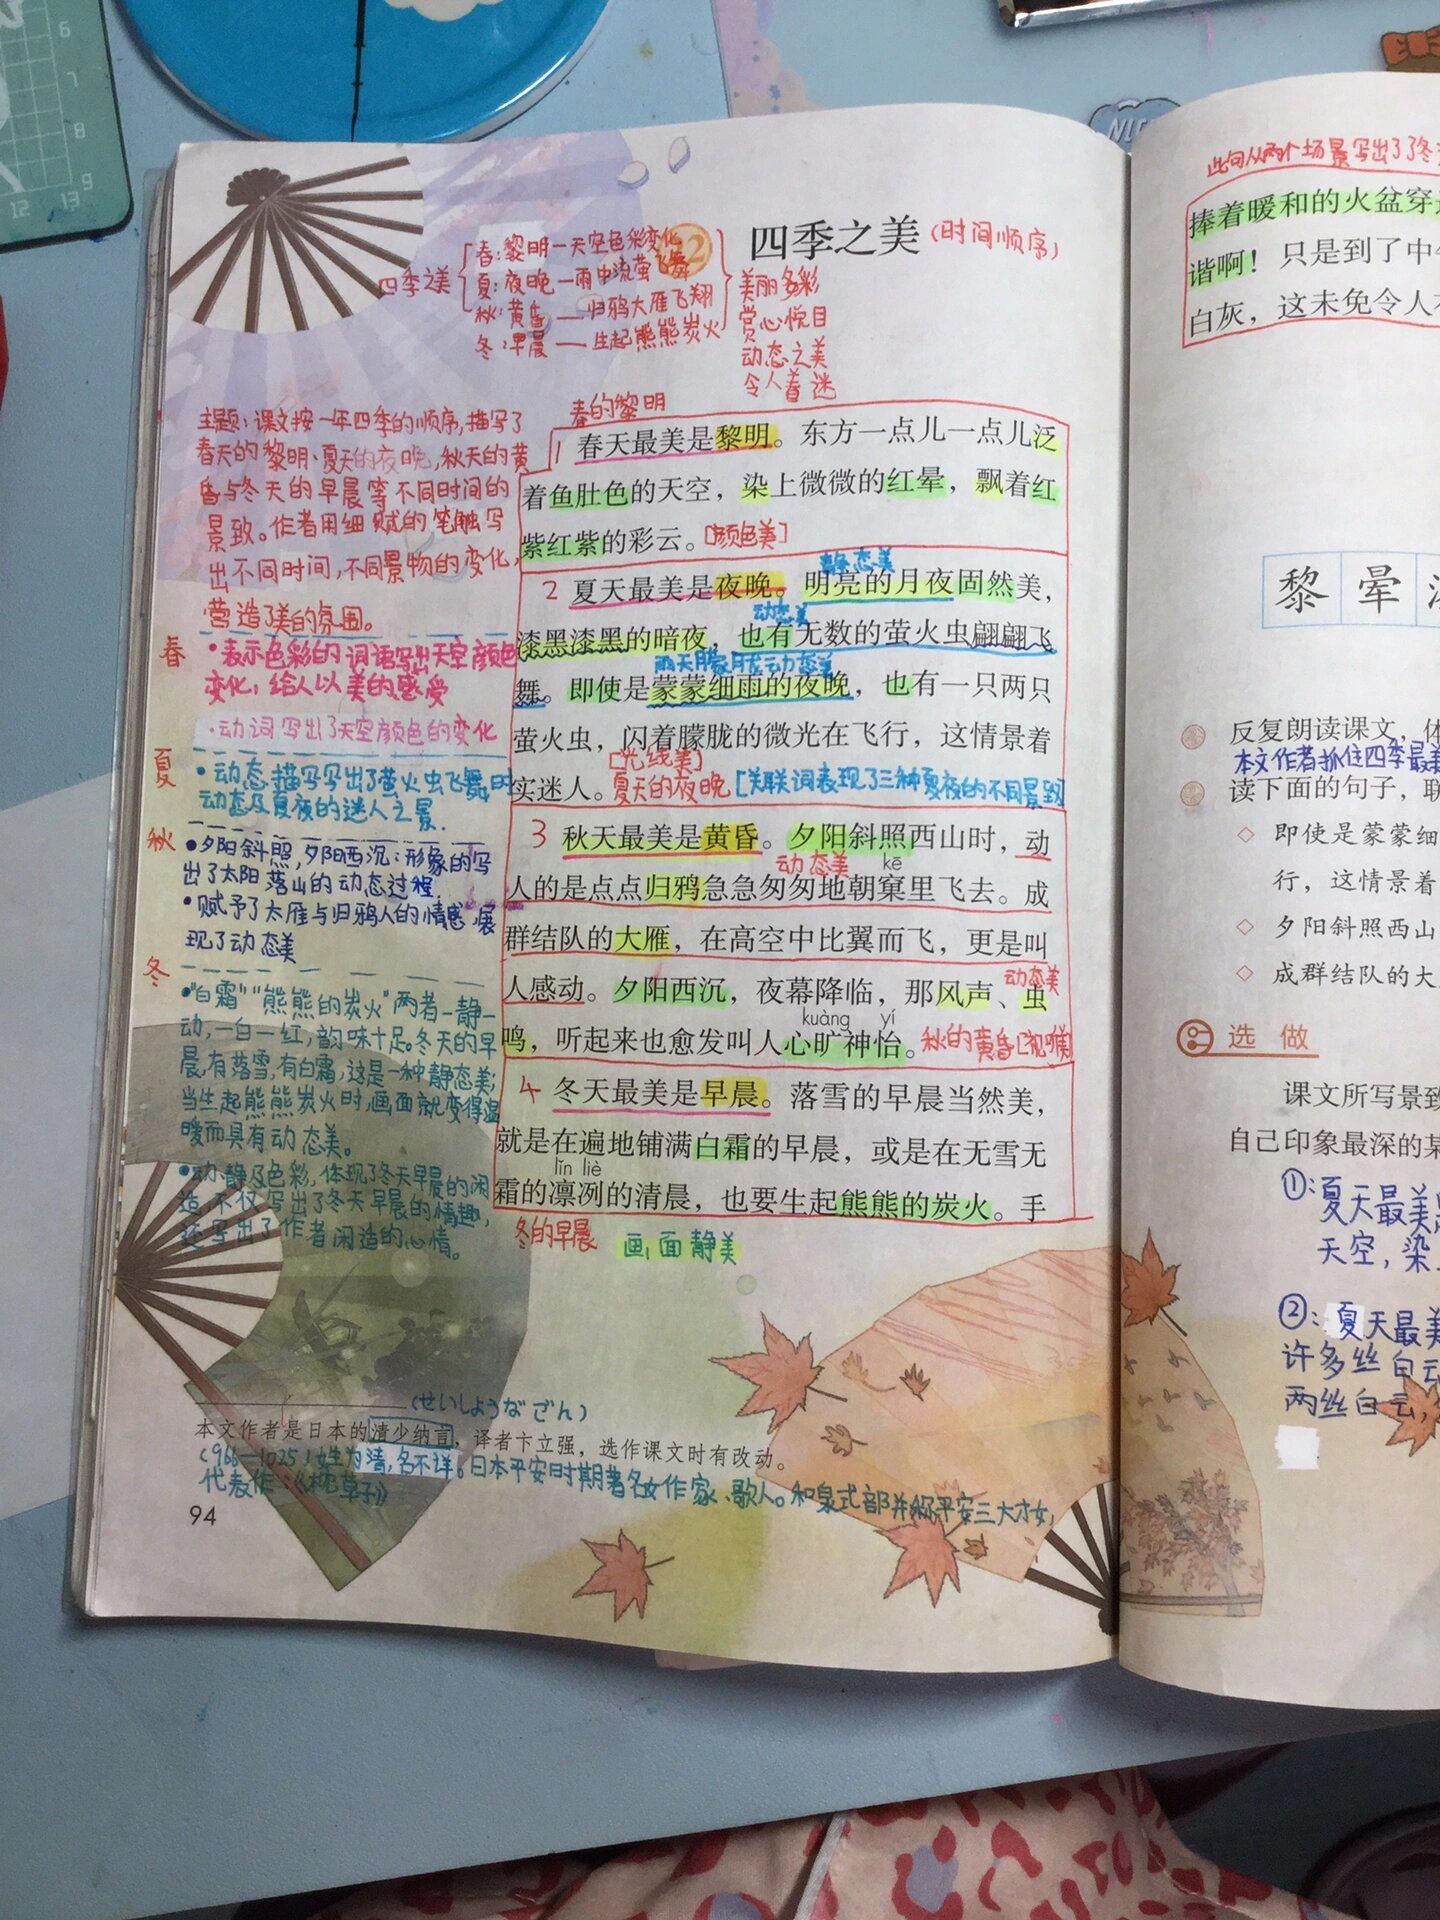 22 四季之美(时间顺序)
四季之美
春:黎明—天空色彩变化
夏:夜晚—雨中流萤飞舞
秋:黄昏——归鸦大雁飞翔
冬:早晨——生起熊熊炭火
美丽多彩
赏心悦目
动态之美
令人着迷
主题:课文按一年四季的顺序,描写了
春天的黎明、夏天的夜晚,秋天的黄
昏与冬天的早晨等不同时间的
景致。作者用细赋的笔触写
出不同时间,不同景物的变化,
营造了美的氛围。
春
•表示色彩的词语写出天空颜色
变化,给人以美的感受
·动词写出了天空颜色的变化
夏
•动态描写写出了萤火虫飞舞时
动态及夏夜的迷人之景.
秋
•夕阳斜照,夕阳西沉:形象的写
出了太阳落山的动态过程.
•赋予了大雁与归鸦人的情感,展
现了动态美
冬
•"白霜""熊熊的炭火"两者一静一
动,一白一红,韵味十足。冬天的早
晨,有落雪,有白霜,这是一种静态美;
当生起熊熊炭火时,画面就变得温
暖而具有动态美。
•动静及色彩,体现了冬天早晨的闲
造,不仅写出了冬天早晨的情趣,
还写出了作者闲造的心情。
春的黎明
1 春天最美是黎明。东方一点儿一点儿泛
着鱼肚色的天空,染上微微的红晕,飘着红
紫红紫的彩云。[颜色美]
静态美
2 夏天最美是夜晚。明亮的月夜固然美,
动态美
漆黑漆黑的暗夜,也有无数的萤火虫翩翩飞
雨天朦胧动态美
舞。即使是蒙蒙细雨的夜晚,也有一只两只
萤火虫,闪着朦胧的微光在飞行,这情景着
[光线美]
实迷人。夏天的夜晚[关联词表现了三种夏夜的不同景致
3 秋天最美是黄昏。夕阳斜照西山时,动
动态美 kē
人的是点点归鸦急急匆匆地朝窠里飞去。成
群结队的大雁,在高空中比翼而飞,更是叫
动态美
人感动。夕阳西沉,夜幕降临,那风声、虫
kuàng yí
鸣,听起来也愈发叫人心旷神怡。秋的黄昏[视嗅]
4 冬天最美是早晨。落雪的早晨当然美,
就是在遍地铺满白霜的早晨,或是在无雪无
lǐn liè
霜的凛冽的清晨,也要生起熊熊的炭火。手
冬的早晨 画面静美
(せいしょうなごん)
本文作者是日本的清少纳言,译者卞立强,选作课文时有改动。
(966—1025)姓为清,名不详。日本平安时期著名女作家、歌人。和泉式部并称平安三大才女,
代表作:《枕草子》
94
此句从两个场景写出了冬
捧着暖和的火盆穿
谐啊!只是到了中
白灰,这未免令人
黎 晕
反复朗读课文,体
本文作者抓住四季最美
读下面的句子,联
◇ 即使是蒙蒙细
行,这情景着
◇ 夕阳斜照西山
◇ 成群结队的大
选做
课文所写景致
自己印象最深的某
①:夏天最美
天空,染
②:夏天最美
许多丝白云
两丝白云,
6
7
8
9
12 13